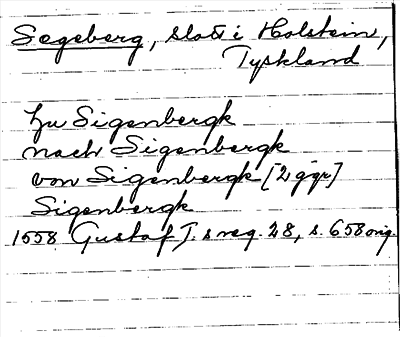 Segeberg, slott i Holstein,
Tyskland
zu Sigenbergk
nach Sigenbergk
von Sigenbergk [2 ggr]
Sigenbergk
1558 Gustaf I:s reg. 28, s. 658 orig.